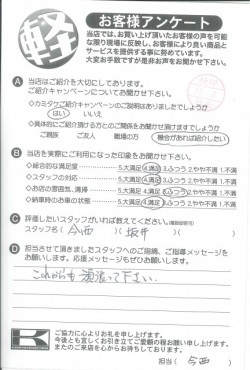 軽
お客様アンケート
当店では、お買い上げ頂いたお客様の声を可能
な限り現場に反映し、お客様により良い商品と
サービスを提供する事に努めています。
大変お手数ですが是非お声をお聞かせ下さい。
A 当店はご紹介を大切にしております。
ご紹介キャンペーンについてお聞かせ下さい。
◇カミタケご紹介キャンペーンのご説明はありましたでしょうか
はい いいえ
◇具体的にご紹介頂ける方とのご関係をお聞かせ頂けますでしょうか
ご親族 ご友人 職場の方 機会があれば紹介したい
B 当店を実際にご利用になった印象をお聞かせ下さい。
◇総合的な満足度 5.大満足 4.満足 3.ふつう 2.やや不満 1.不満
◇スタッフの対応 5.大満足 4.満足 3.ふつう 2.やや不満 1.不満
◇お店の雰囲気、清掃 5.大満足 4.満足 3.ふつう 2.やや不満 1.不満
◇納車時のお車の状態 5.大満足 4.満足 3.ふつう 2.やや不満 1.不満
C 評価したいスタッフがいれば教えてください。
スタッフ名( 今西 ) ( 坂井 )
D 担当させて頂きましたスタッフへのご指摘、ご指導メッセージを
お願いします。応援メッセージもぜひお願いします。
これからも頑張って下さい。
ご協力に心よりお礼を申し上げます。
今後とも宜しくお引き立てご愛顧の程お願い申し上げます。
またのご来店を心からお待ちしております。
担当( 今西 )